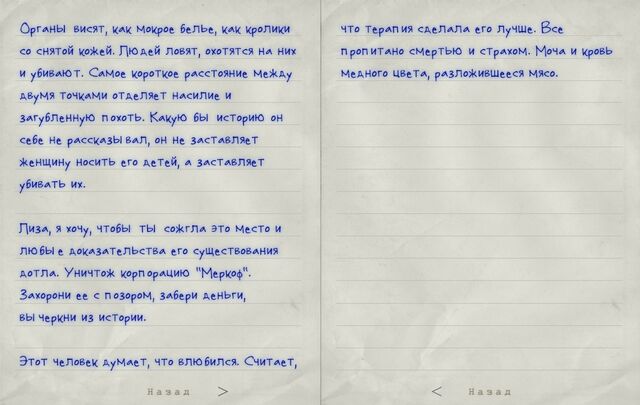 Органы висят, как мокрое белье, как кролики
со снятой кожей. Людей ловят, охотятся на них
и убивают. Самое короткое расстояние между
двумя точками отделяет насилие и
загубленную похоть. Какую бы историю он
себе не рассказывал, он не заставляет
женщину носить его детей, а заставляет
убивать их.
Лиза, я хочу, чтобы ты сожгла это место и
любые доказательства его существования
дотла. Уничтож корпорацию "Меркоф".
Захорони ее с позором, забери деньги,
вычеркни из истории.
Этот человек думает, что влюбился. Считает,
Назад >
что терапия сделала его лучше. Все
пропитано смертью и страхом. Моча и кровь
медного цвета, разложившееся мясо.
< Назад